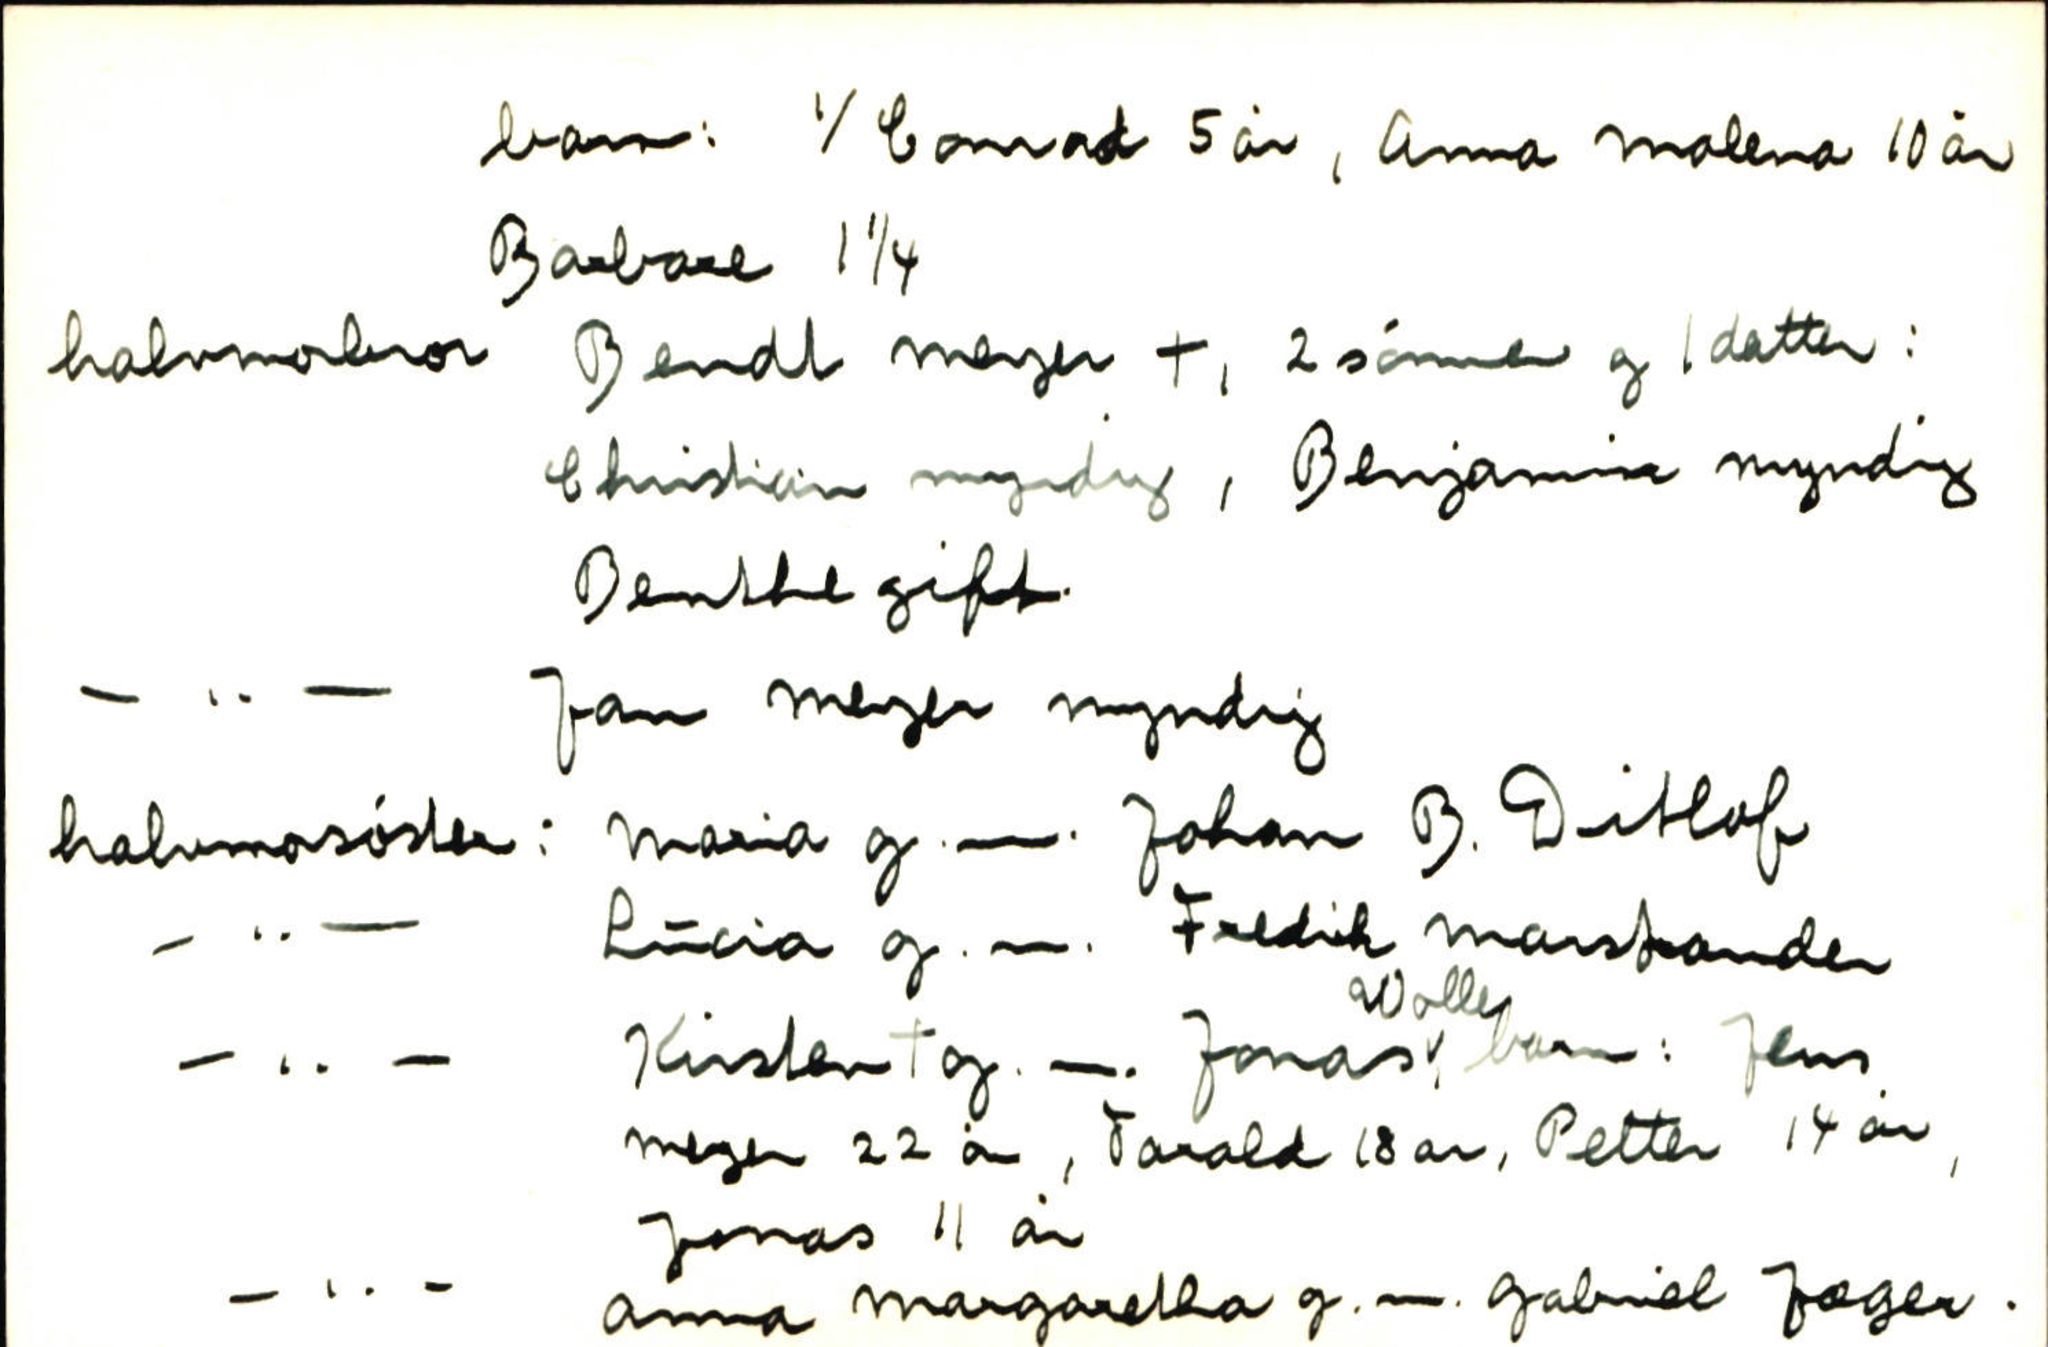 barn: 1/ Conrad 5 år, Anna Malena 10 år
Barbare 1 1/4
halvmorbror Bendt Meyer +, 2 sónner og 1 datter:
Christian myndig, Benjamin myndig
Benthe gift.
— " — Jan Meyer myndig
halvmorsóster: Maria g. m. Johan B. Ditlof
— " — Lucia g. m. Fredrik Marstrander
Wolle
— " — Kirsten † g. m. Jonas, barn: Jens
Meyer 22 år, Tarald 18 år, Petter 14 år,
Jonas 11 år
— " — Anna Margaretha g. m. Gabriel Jæger.